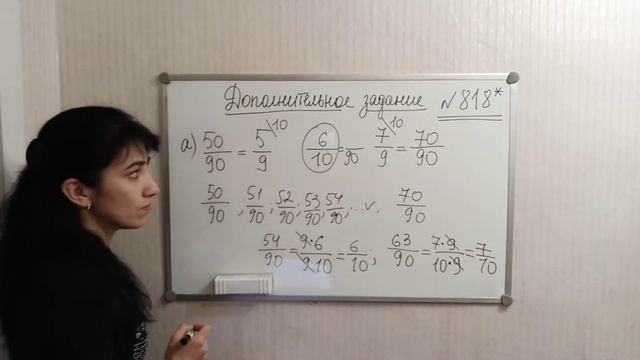 Дополнительное задание №818*
а) 50/90 = 5/9 \10 6/10 = /90 7/9 \10 = 70/90
50/90 , 51/90 ; 52/90 ; 53/90 ; 54/90 ; ... , 70/90
54/90 = 9·6/9·10 = 6/10 ; 63/90 = 7·9/10·9 = 7/70